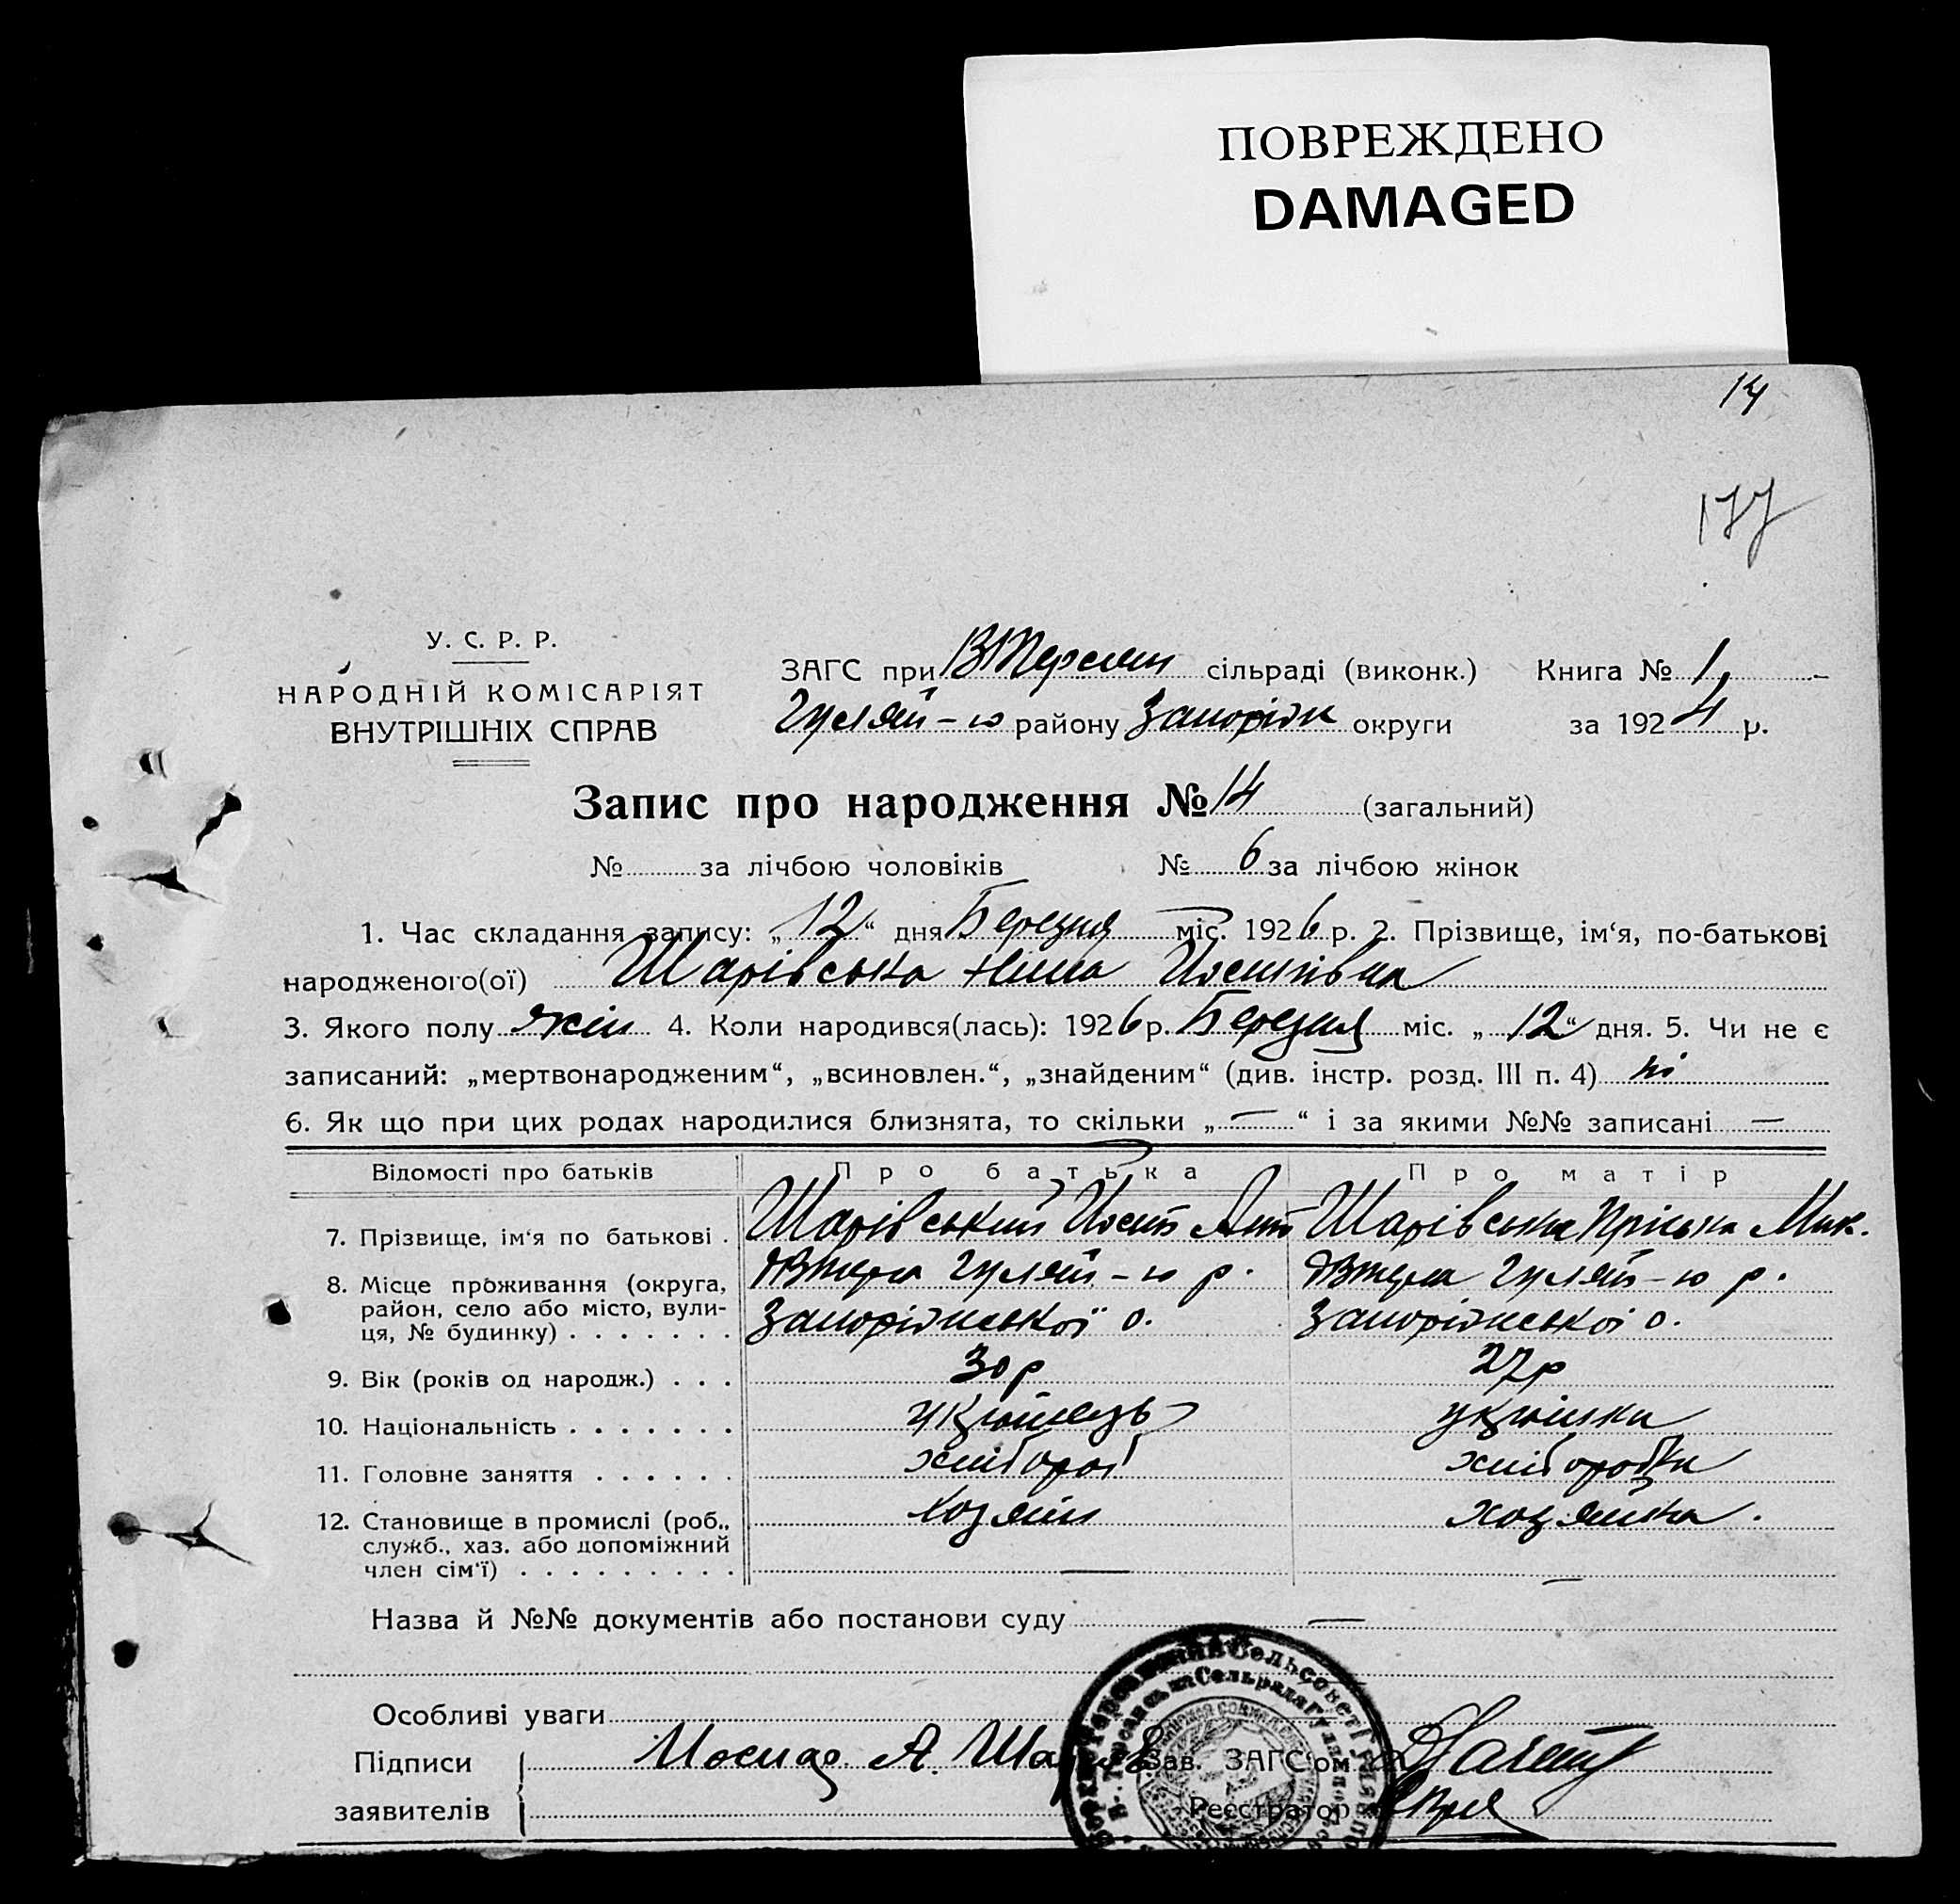 ПОВРЕЖДЕНО
DAMAGED
14
177
У. С. Р. Р.
НАРОДНІЙ КОМІСАРІЯТ
ВНУТРІШНІХ СПРАВ
ЗАГС при ВТерсян сільраді (виконк.) Книга № 1
Гуляй-ю району Запоріж округи за 1924 р.
Запис про народження № 14 (загальний)
№ за лічбою чоловіків № 6 за лічбою жінок
1. Час складання запису: „12“ дня Березня міс. 1926 р. 2. Прізвище, ім‘я, по-батькові
народженого(ої) Шарівська Ніна Йосипівна
3. Якого полу жін 4. Коли народився(лась): 1926 р. Березня міс. „12“ дня. 5. Чи не є
записаний: „мертвонародженим“, „всиновлен.“, „знайденим“ (див. інстр. розд. III п. 4) ні
6. Як що при цих родах народилися близнята, то скільки „—“ і за якими №№ записані —
Відомості про батьків Про батька Про матір
7. Прізвище, ім‘я по батькові . Шарівський Йосип Ант Шарівська Пріська Мик.
8. Місце проживання (округа, Гуляй-ю р. Гуляй-ю р.
район, село або місто, вули- Запоріжської о. Запоріжської о.
ця, № будинку) . . . . . . .
9. Вік (років од народж.) . . . 30 р 27 р
10. Національність . . . . . . . українець українка
11. Головне заняття . . . . . . хлібороб хліборобка
12. Становище в промислі (роб., хозяїн хозяйка.
служб., хаз. або допоміжний
член сім‘ї) . . . . . . . . . — —
Назва й №№ документів або постанови суду —
Особливі уваги
Підписи А. Зав. ЗАГС‘ом
заявителів Реєстратор